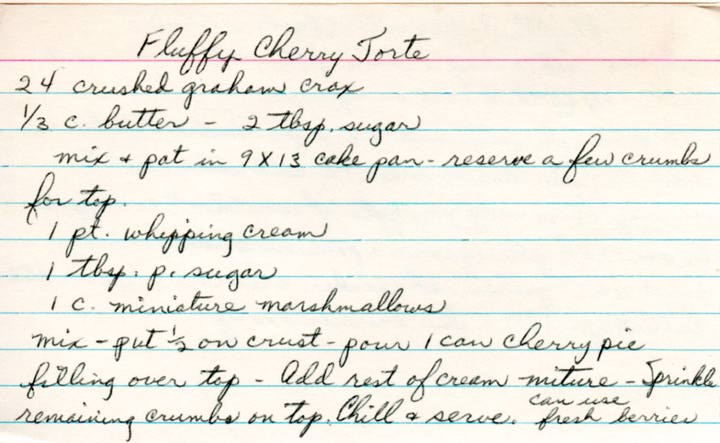 Fluffy Cherry Torte
24 crushed graham crax
1/3 c. butter - 2 tbsp. sugar
mix + pat in 9 X 13 cake pan - reserve a few crumbs
for top.
1 pt. whipping cream
1 tbsp. p. sugar
1 c. miniature marshmallows
mix - put 1/2 on crust - pour 1 can cherry pie
filling over top - Add rest of cream miture - Sprinkle
remaining crumbs on top. Chill + serve. can use
fresh berries